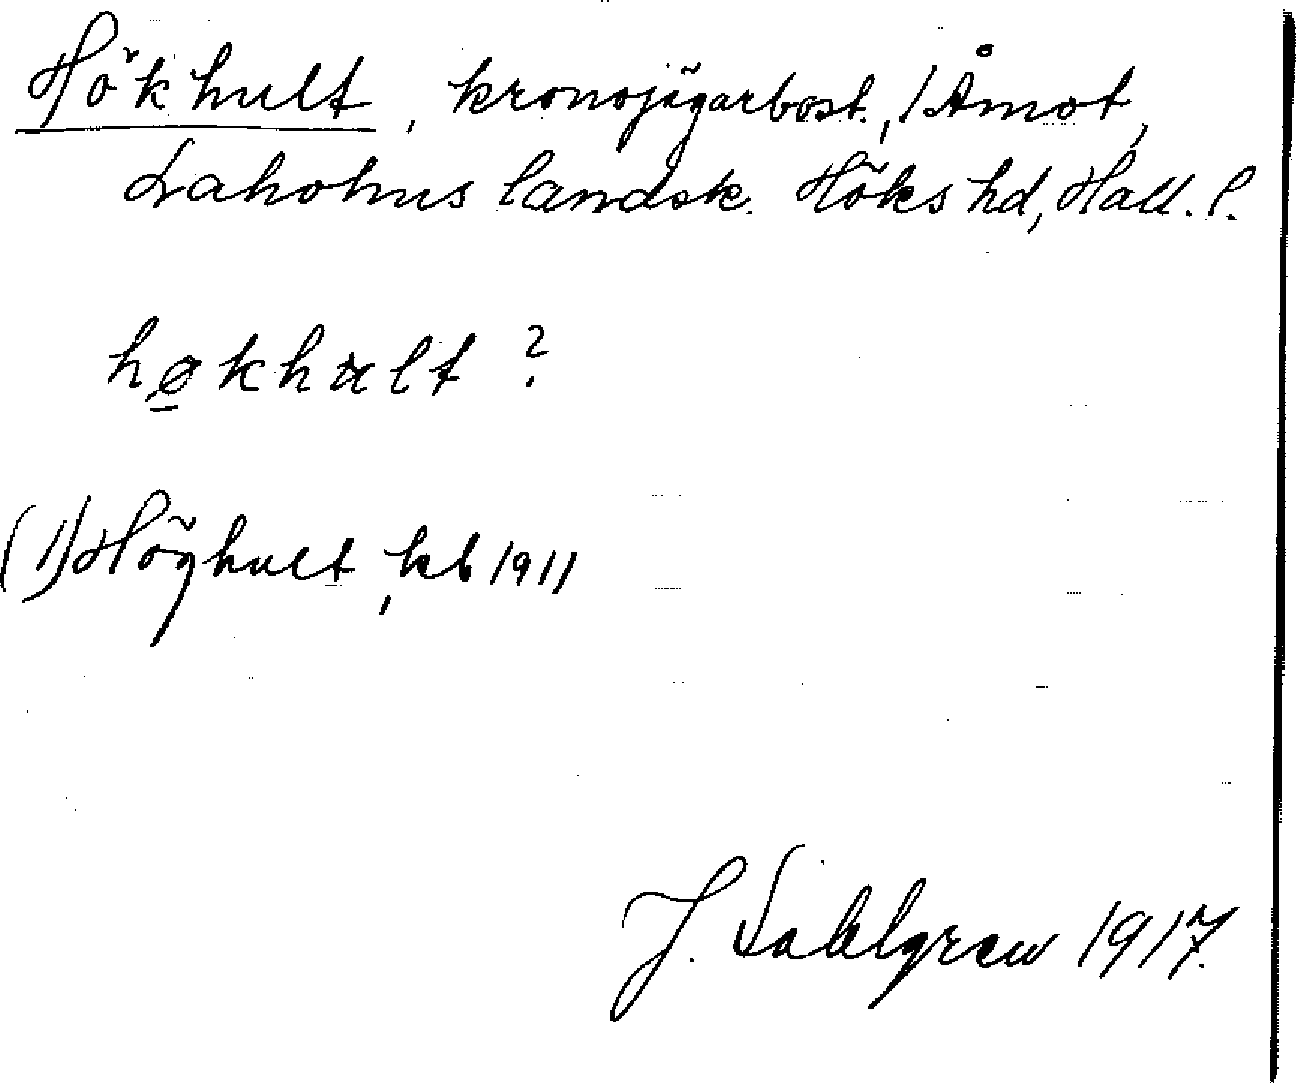 Hökhult, kronojägarbost., / Åmot,
Laholms landsk. Höks hd, Hall. l.
høkhult ?
(1) Höghult, kb 1911
J. Sahlgren 1917.